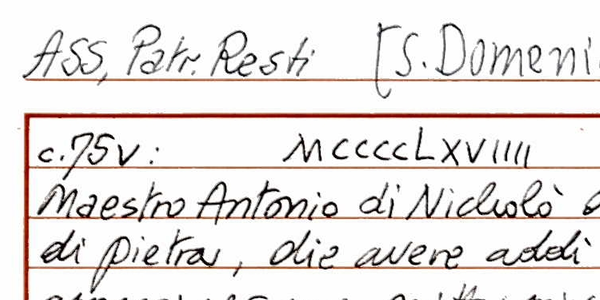 ASS, Patr. Resti [S. Domeni
c. 75v: MCCCCLXVIIII
Maestro Antonio di Nicholò
di pietra, die avere addì